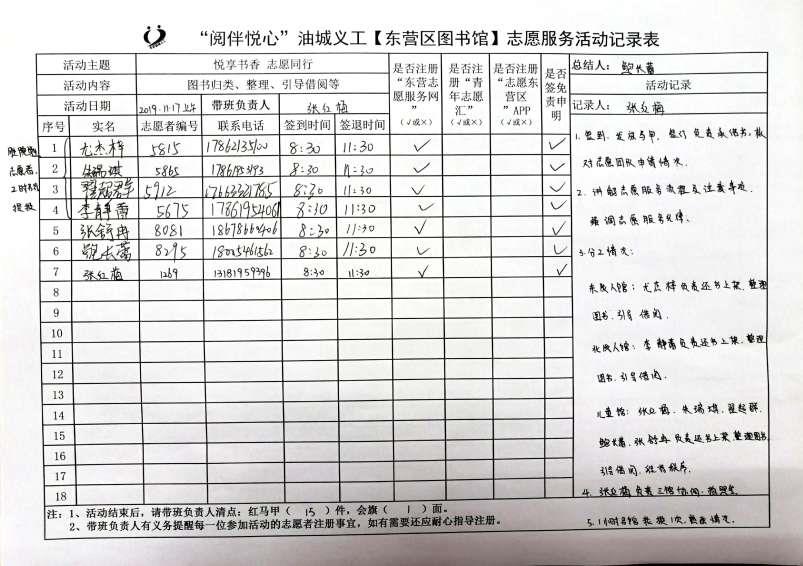 “阅伴悦心”油城义工【东营区图书馆】志愿服务活动记录表
活动主题 悦享书香 志愿同行
活动内容 图书归类、整理、引导借阅等
活动日期 2019.11.17上午 带班负责人 张红梅
序号 实名 志愿者编号 联系电话 签到时间 签退时间 是否注册“东营志愿服务网”(√或×) 是否注册“青年志愿汇”(√或×) 是否注册“志愿东营区”APP(√或×) 是否签免责申明
总结人: 鲍长蕾
活动记录
记录人: 张红梅
1 尤杰梓 5815 8:30 11:30 √ √
2 朱瑞琪 5865 8:30 11:30 √ √
3 5912 8:30 11:30 √ √
4 李静蕾 5675 8:30 11:30 √ √
5 张舒冉 8081 8:30 11:30 √ √
6 鲍长蕾 8295 8:30 11:30 √ √
7 张红梅 1269 13181959396 8:30 11:30 √ √
8
9
10
11
12
13
14
15
16
17
18
志愿者
2.讲解志愿服务流程及注意事项
强调志愿服务纪律.
3.分工情况:
尤杰梓负责还书上架.整理
图书.引导借阅.
李静蕾负责还书上架.整理
图书.引导借阅.
儿童馆: 张红梅. 朱瑞琪.
鲍长蕾.张舒冉负责还书上架.整理图书
引导借阅.
4. 张红梅负责三馆协调.
注:1、活动结束后,请带班负责人清点:红马甲( 15 )件,会旗( 1 )面。
2、带班负责人有义务提醒每一位参加活动的志愿者注册事宜,如有需要还应耐心指导注册。